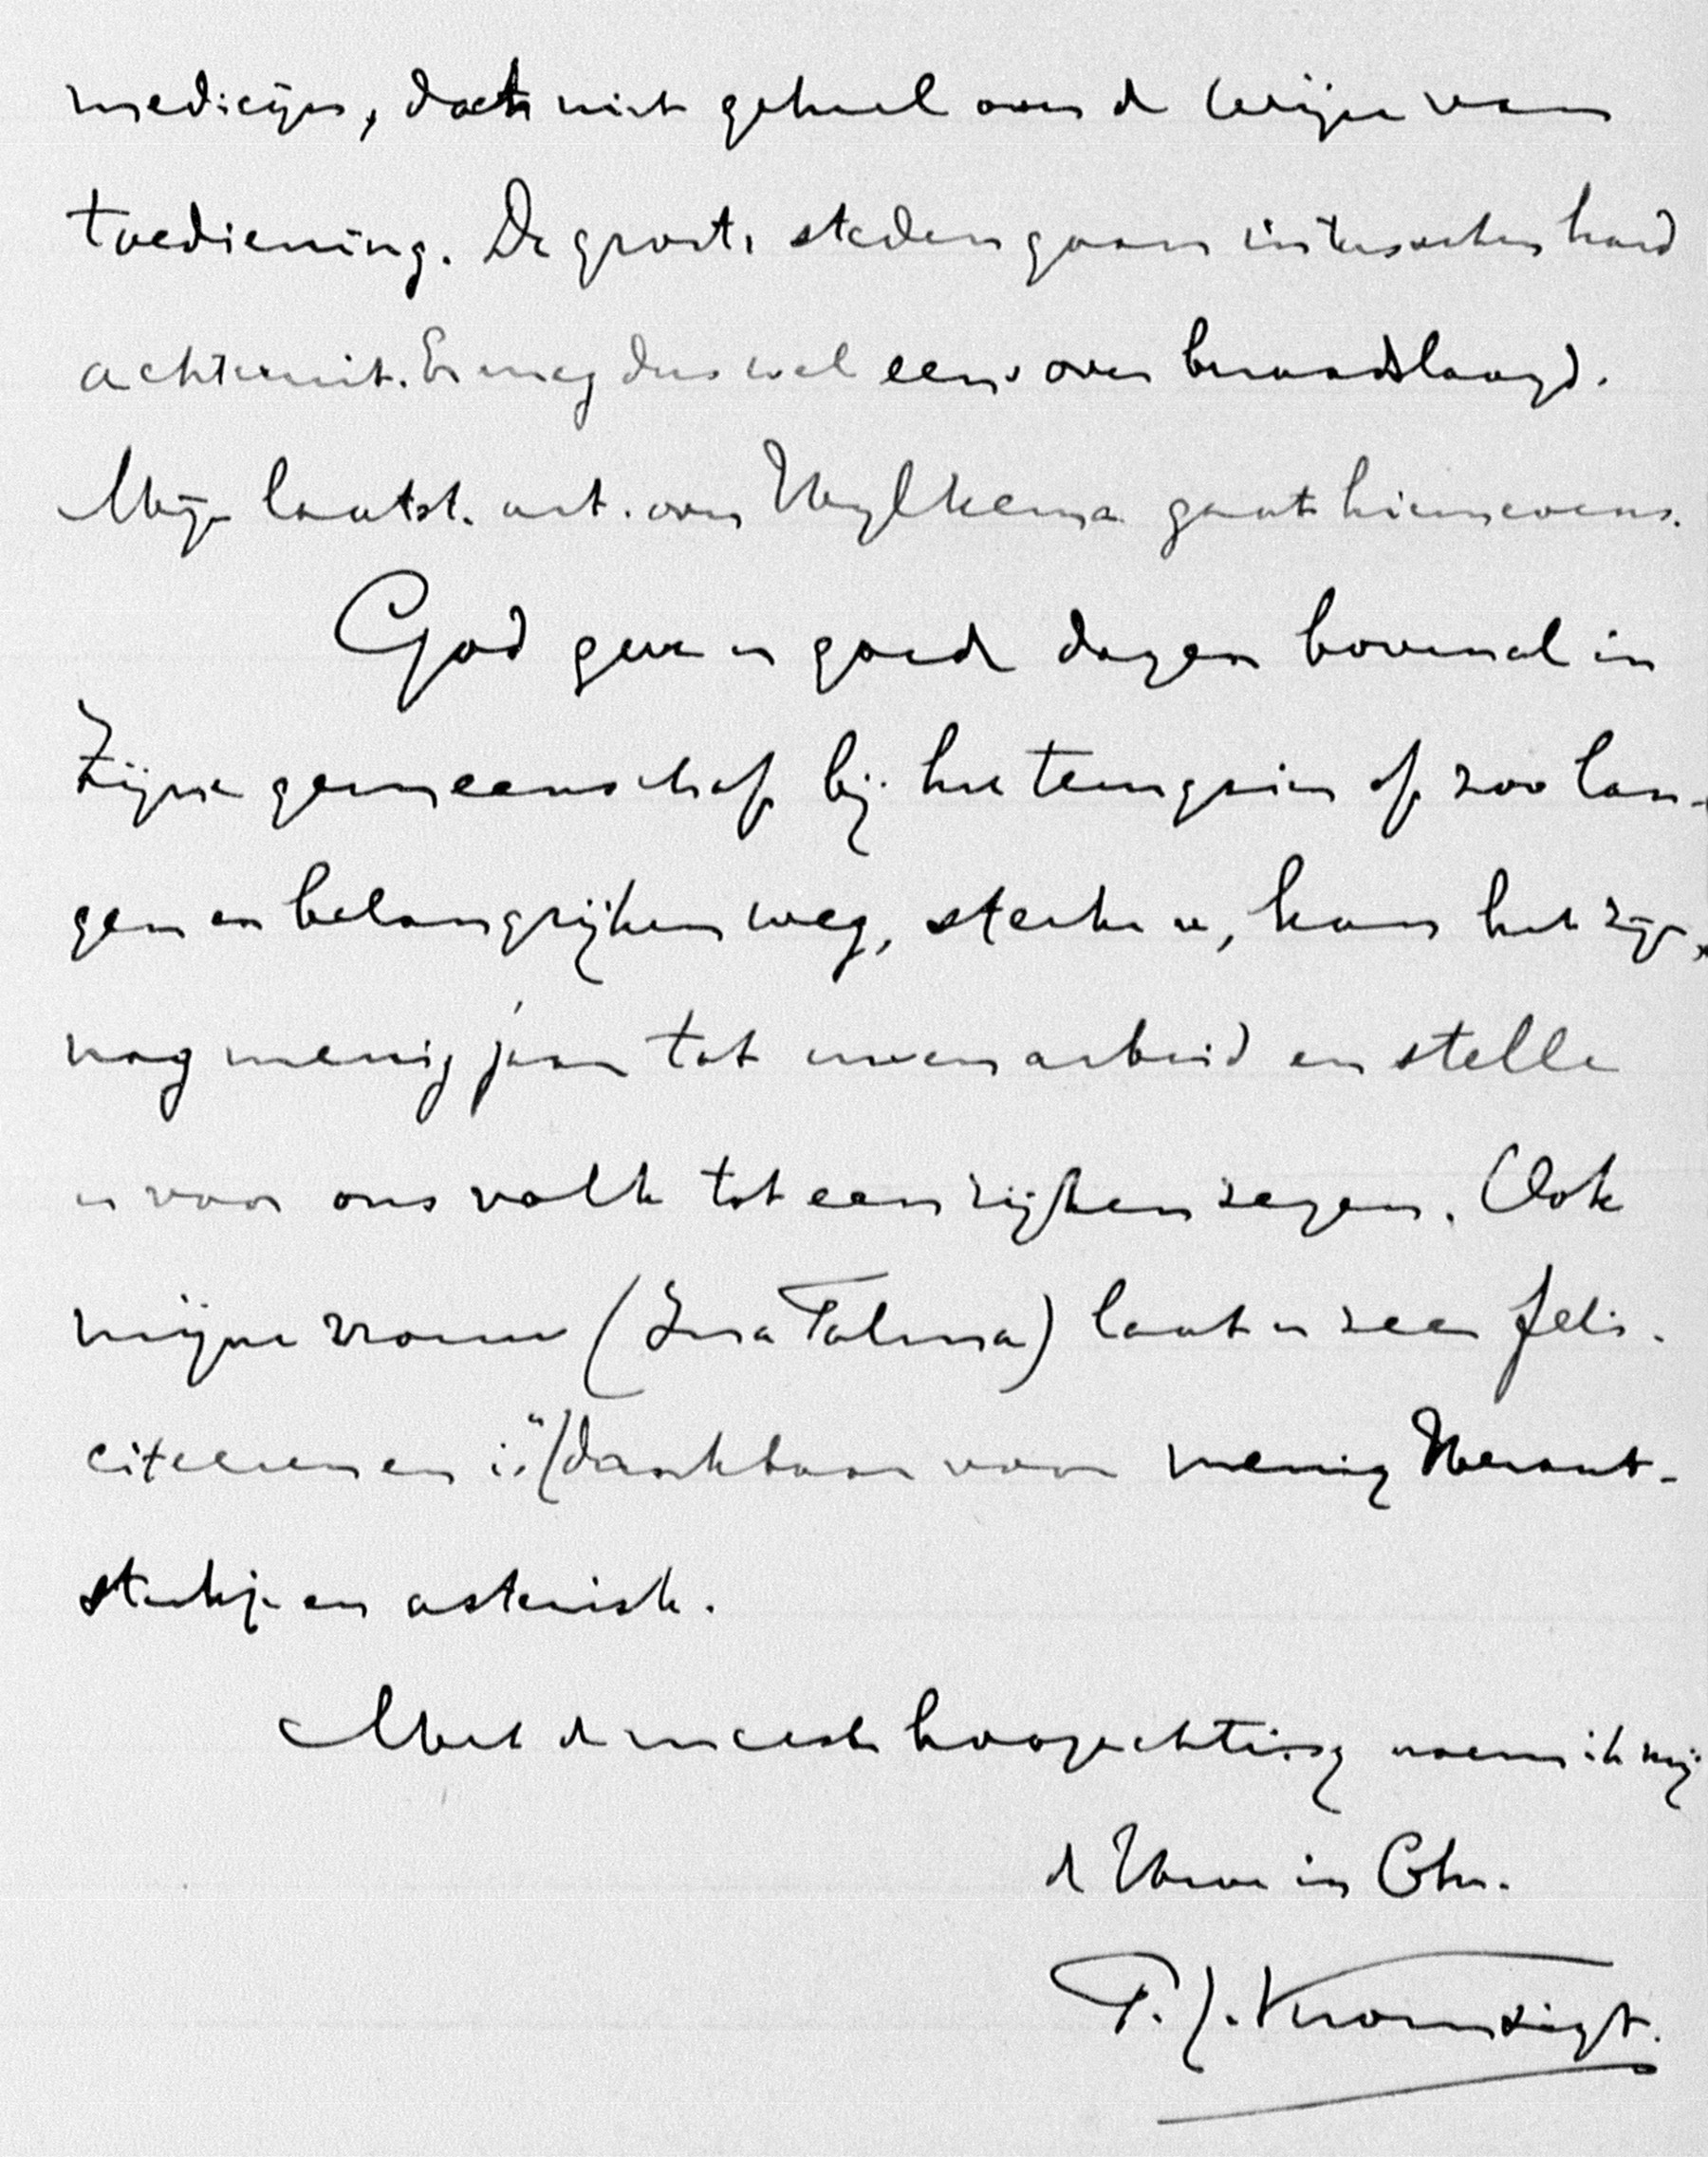 medicijn, doch niet geheel over de wijze van
toediening. De groote steden gaan intusschen hard
achteruit. Er mag dus wel eens over beraadslaagd.
Mijn laatst. art. over Wylkema gaat hiernevens.
God geve u goede dagen bovenal in
Zijne gemeenschap bij het terugzien op zoo lan-
gen en belangrijken weg, sterke u, kan het zijn,
nog menig jaar tot uwen arbeid en stelle
u voor ons volk tot een rijken zegen. Ook
mijne vrouw (Ina Talma) laat u zeer feli-
citeeren en is u dankbaar voor menig Heraut-
stukje en asterisk.
Met de meeste hoogachting noem ik mij
de Uwe in Chr.
P. J. Kromsigt.